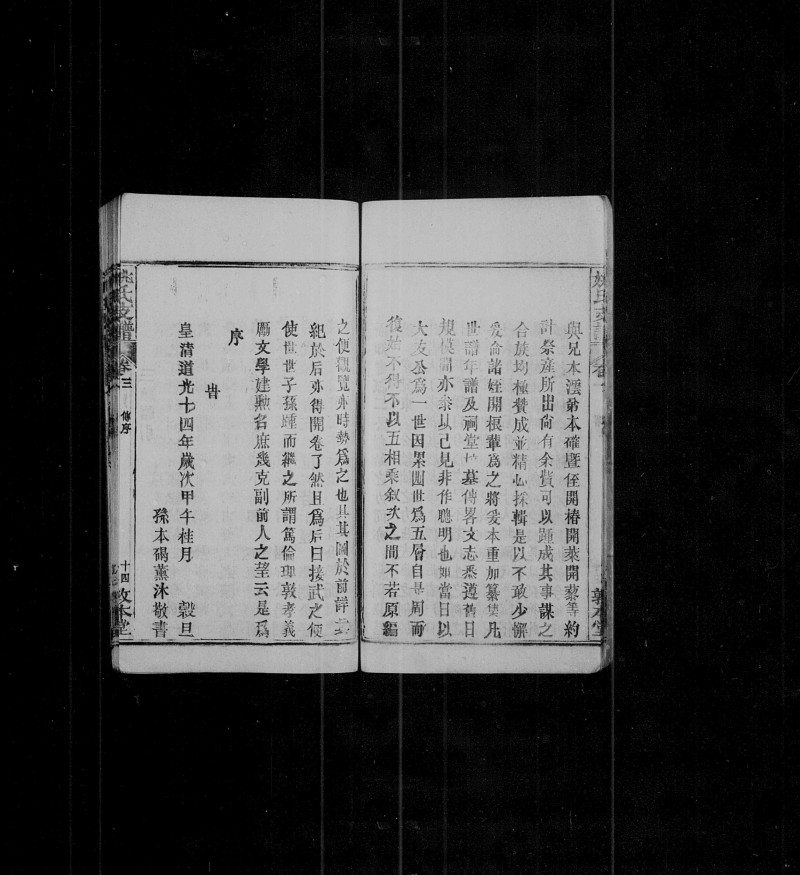 與兄本澐弟本確暨侄開椿開萊開藜等約
計祭産所出尙有余貲可以踵成其事謀之
合族均極贊成並精心採輯是以不敢少懈
爰命諸姪開根輩爲之將爰本重加纂集凡
世譜年譜及祠堂坵墓傳畧文志悉遵舊日
規模間亦叅以己見非作聰明也如當日以
大友公爲一世因累圖世爲五層自是周而
復始不得不以五相乘叙次之間不若原編
之便觀覽亦時勢爲之也具其圖於前詳
紀於后亦得開卷了然且爲后日接武之便
使世世子孫踵而繼之所謂篤倫理敦孝義
勵文學建勲名庶幾克副前人之望云是爲
序
旹
皇清道光十四年歲次甲午桂月 穀旦
孫本碣薰沐敬書
姚氏支譜 卷三 傳序 十四 敦本堂